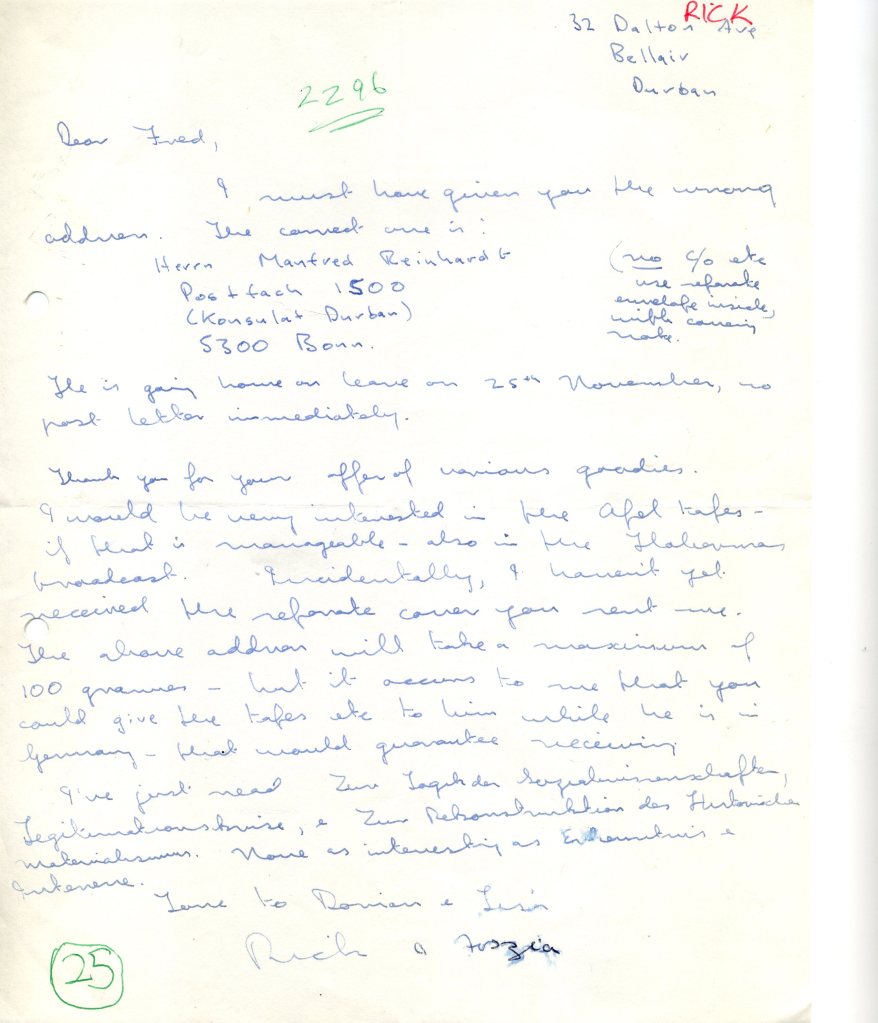 RICK
32 Dalton Ave
Bellair
Durban
2296
Dear Fred,
I must have given you the wrong
address. The correct one is:
Herrn Manfred Reinhardt
Postfach 1500
(Konsulat Durban)
5300 Bonn.
(no c/o etc
use separate
envelope inside,
with covering
note.
He is going home on leave on 25th November, so
post letter immediately.
Thank you for your offer of various goodies.
I would be very interested in the Apel tapes –
if that is manageable – also in the Habermas
broadcast. Incidentally, I haven't yet
received the separate cover you sent me.
The above address will take a maximum of
100 grammes – but it occurs to me that you
could give the tapes etc to him while he is in
Germany – that would guarantee receiving
I've just read Zur Logik der Sozialwissenschaften,
Legitimationskrise, & Zur Rekonstruktion des Historischen
materialismus. None as interesting as Erkenntnis &
Interesse.
Love to &
Rick & Fozia
25